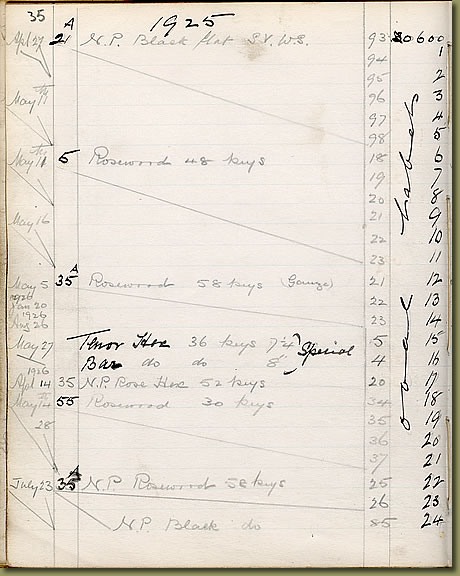 35 A 1925
Apl 27 21 N.P. Black flat S.V. W.S. 93 30600
94 1
95 2
May 11 96 3
97 4
98 5
May 11 5 Rosewood 48 keys 18 6
19 7
20 8
May 16 21 9
22 10
23 11
May 5 35 A Rosewood 58 keys (Gauze) 21 12
1926
Jan 20 22 13
1926
26 23 14
May 27 Tenor Hex 36 keys 7¼" Special 5 15
Bar do do 8" 4 16
1926
Apl 14 35 N.P. Rose Hex 52 keys 20 17
May 14 55 Rosewood 30 keys 34 18
28 35 19
36 20
37 21
July 23 35 A N.P. Rosewood 58 keys 25 22
26 23
N.P. Black do 85 24
oval